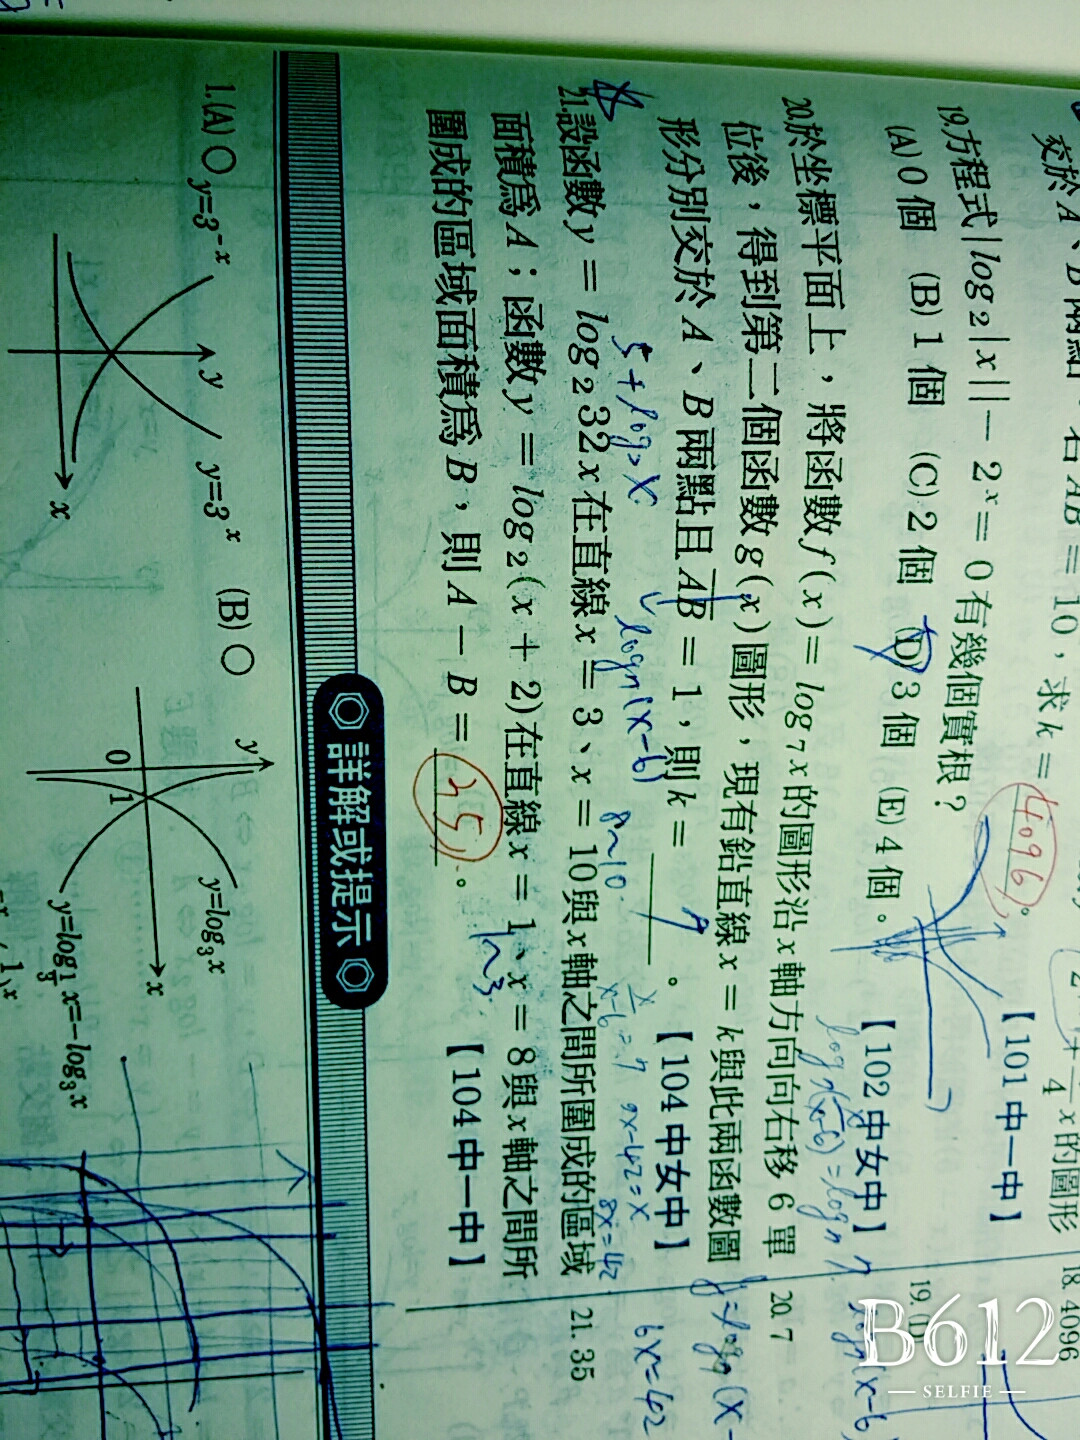 交於A、B兩點，若AB = 10，求k = 4096。
【101中一中】
18. 4096
19.方程式|log₂|x|| − 2ˣ = 0有幾個實根？
(A)0個 (B)1個 (C)2個 (D)3個 (E)4個。
【102中女中】
19. (D)
20.於坐標平面上，將函數f(x) = log₇x的圖形沿x軸方向向右移6單
位後，得到第二個函數g(x)圖形，現有鉛直線x = k與此兩函數圖
形分別交於A、B兩點且AB = 1，則k = 。【104中女中】
20. 7
5+log₂x
8~10
x/x-6 = 7
7x-42=x
6x=42
21.設函數y = log₂32x在直線x = 3、x = 10與x軸之間所圍成的區域
面積為A；函數y = log₂(x + 2)在直線x = 1、x = 8與x軸之間所
圍成的區域面積為B，則A − B = 35。【104中一中】
21. 35
詳解或提示
1.(A)○ y=3⁻ˣ y y=3ˣ x
(B)○ y 0 1 y=log₃x x y=log⅓x=−log₃x
B612
SELFIE